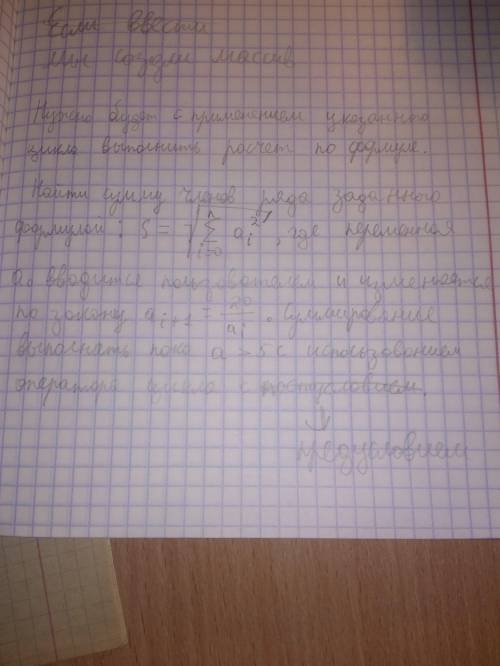 Если ввести
Мы создали массив
Нужно будет с применением указанного
цикла выполнить расчет по формуле.
Найти сумму членов ряда заданного
формулой: S = √(∑_{i=0}^{n} a_i^2), где переменная
a₀ вводится пользователем и изменяется
по закону a_{i+1} = 20/a_i. Суммирование
выполнять пока a > 5 с использованием
оператора цикла с постусловием.
↓
предусловием